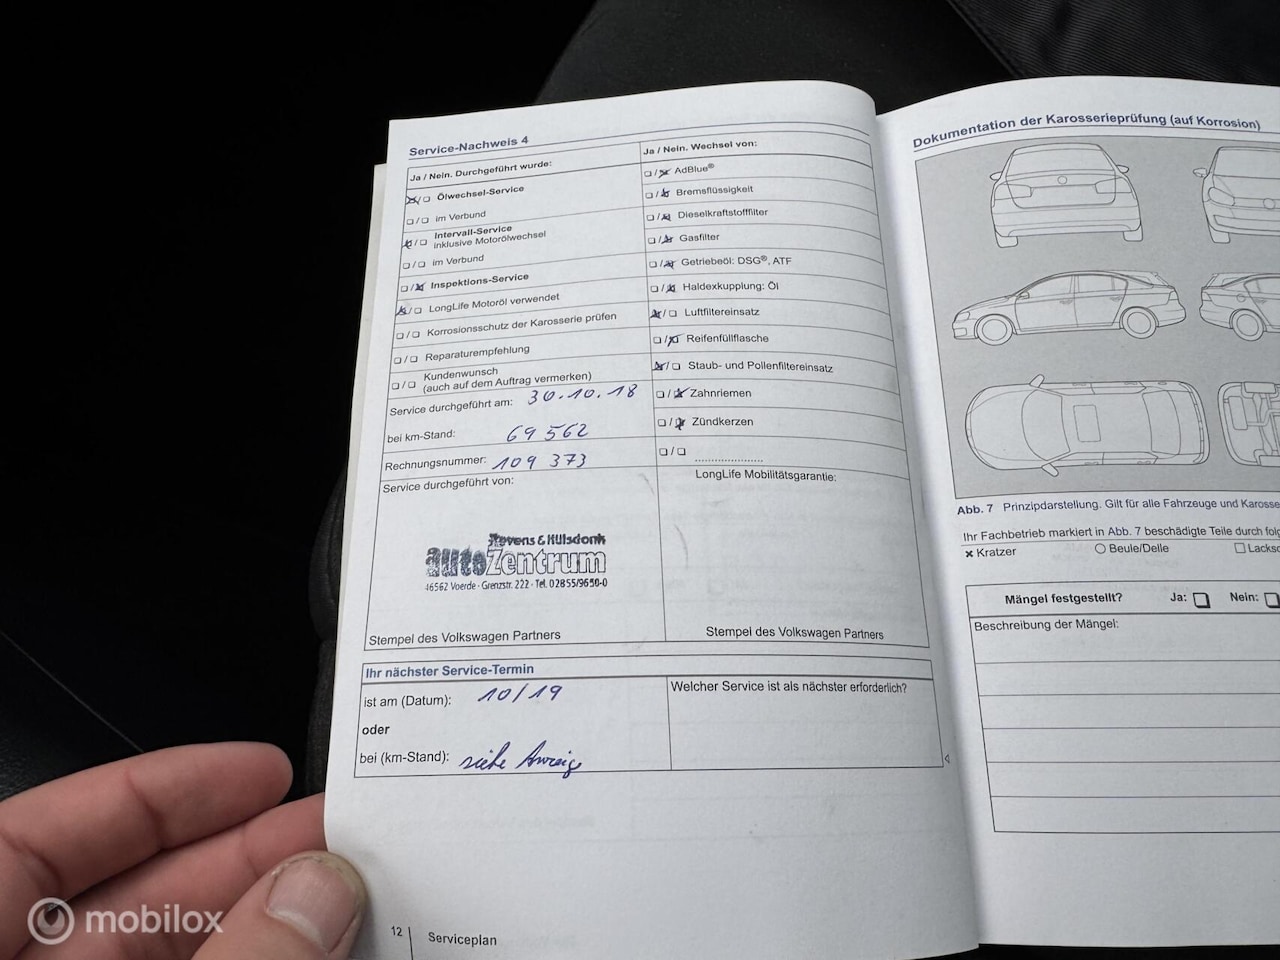 Service-Nachweis 4
Ja / Nein. Durchgeführt wurde:
Ölwechsel-Service
im Verbund
Intervall-Service
inklusive Motorölwechsel
im Verbund
Inspektions-Service
LongLife Motoröl verwendet
Korrosionsschutz der Karosserie prüfen
Reparaturempfehlung
Kundenwunsch
(auch auf dem Auftrag vermerken)
Service durchgeführt am: 30.10.18
bei km-Stand: 69 562
Rechnungsnummer: 109 373
Service durchgeführt von:
Stevens & Hülsdonk
autoZentrum
46562 Voerde · Grenzstr. 222 · Tel. 02855/9650-0
Stempel des Volkswagen Partners
Ja / Nein. Wechsel von:
AdBlue®
Bremsflüssigkeit
Dieselkraftstofffilter
Gasfilter
Getriebeöl: DSG®, ATF
Haldexkupplung: Öl
Luftfiltereinsatz
Reifenfüllflasche
Staub- und Pollenfiltereinsatz
Zahnriemen
Zündkerzen
LongLife Mobilitätsgarantie:
Stempel des Volkswagen Partners
Ihr nächster Service-Termin
ist am (Datum): 10/19
oder
bei (km-Stand): siehe Anzeige
Welcher Service ist als nächster erforderlich?
12
Serviceplan
Dokumentation der Karosserieprüfung (auf Korrosion)
Abb. 7 Prinzipdarstellung. Gilt für alle Fahrzeuge und Karosse
Ihr Fachbetrieb markiert in Abb. 7 beschädigte Teile durch folg
Kratzer
Beule/Delle
Lacksc
Mängel festgestellt? Ja: Nein:
Beschreibung der Mängel:
mobilox